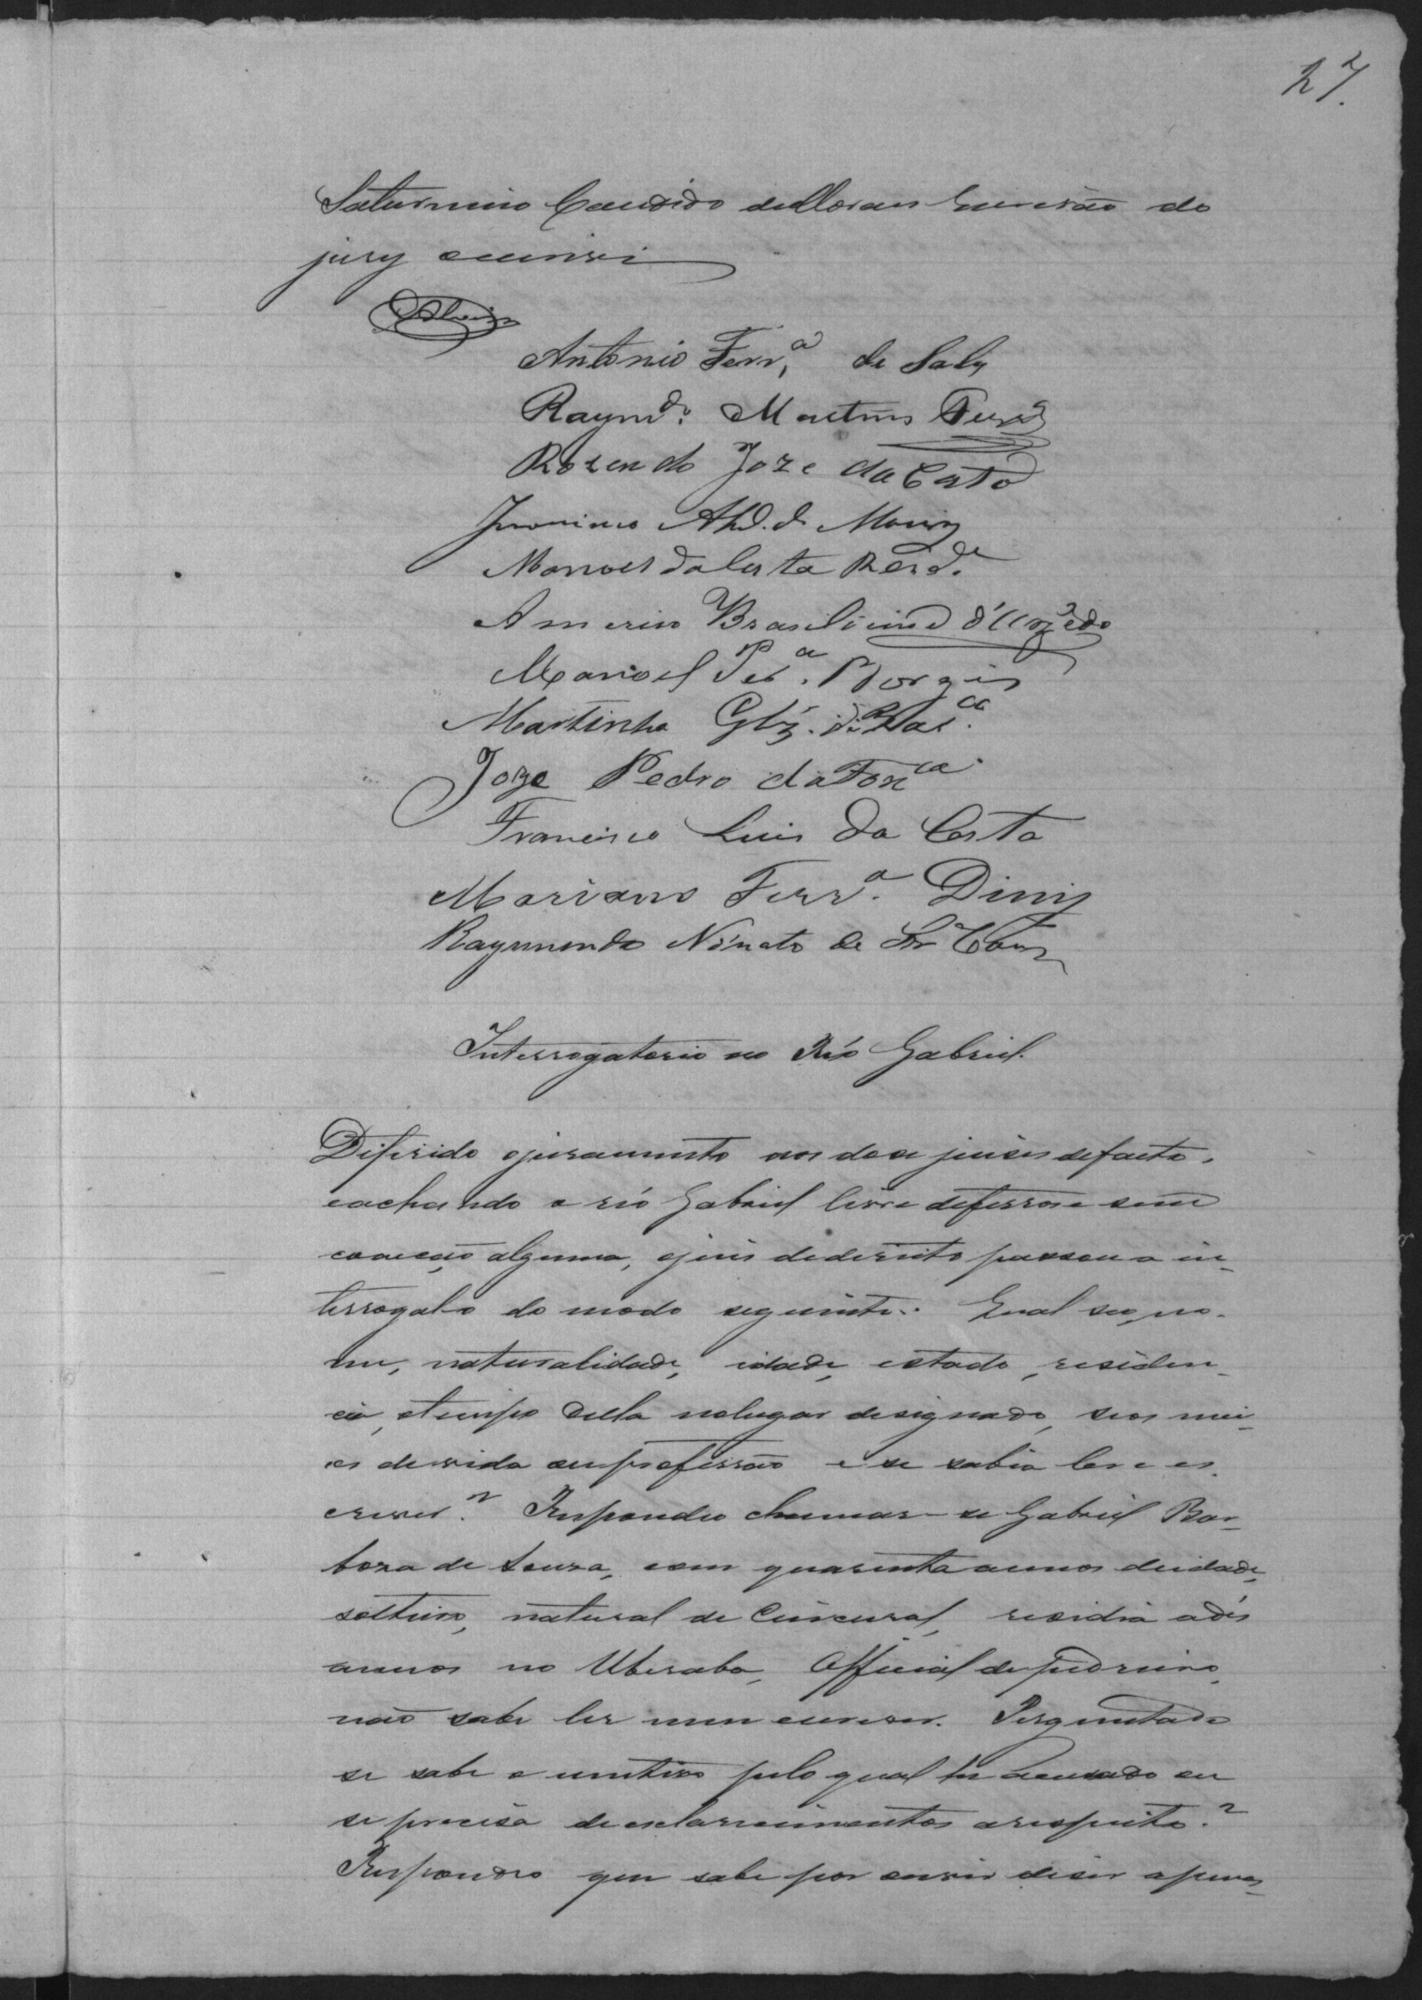 27.
Saturnino Candido de Moraes Escrivão do
jury escrivi
Antonio Ferr.ª de
Raym.do Martins
Rozendo Joze da Costa
Manoel da Costa Rezd.e
Americo Brasilino d'Azevedo
Manoel Per.ª Borges
Martinho Glz.
Joze Pedro da Fon.ca
Francisco Luis da Costa
Mariano Ferr.ª Diniz
Raymundo Nonato de
Interrogatorio ao Réo Gabriel.
Diferido o juramento aos dose juises de facto,
e achando o réo Gabriel livre de ferros e sem
coacção alguma, o juis de direito passou a in-
terrogal-o do modo seguinte: Qual seo no-
me, naturalidade, idade, estado, residen-
cia, e tempo della no lugar designado, seos mei-
os de vida ou profissão e se sabia ler e es-
crever? Respondeo chamar-se Gabriel Bar-
boza de Souza, com quarenta annos de idade,
solteiro, natural de residia a dés
annos no Uberaba, Official de pedreiro,
não sabe ler nem escrever. Perguntado
se sabe o motivo pelo qual he accusado ou
se precisa de esclarecimentos a respeito?
Respondeo que sabe por ouvir diser apenas